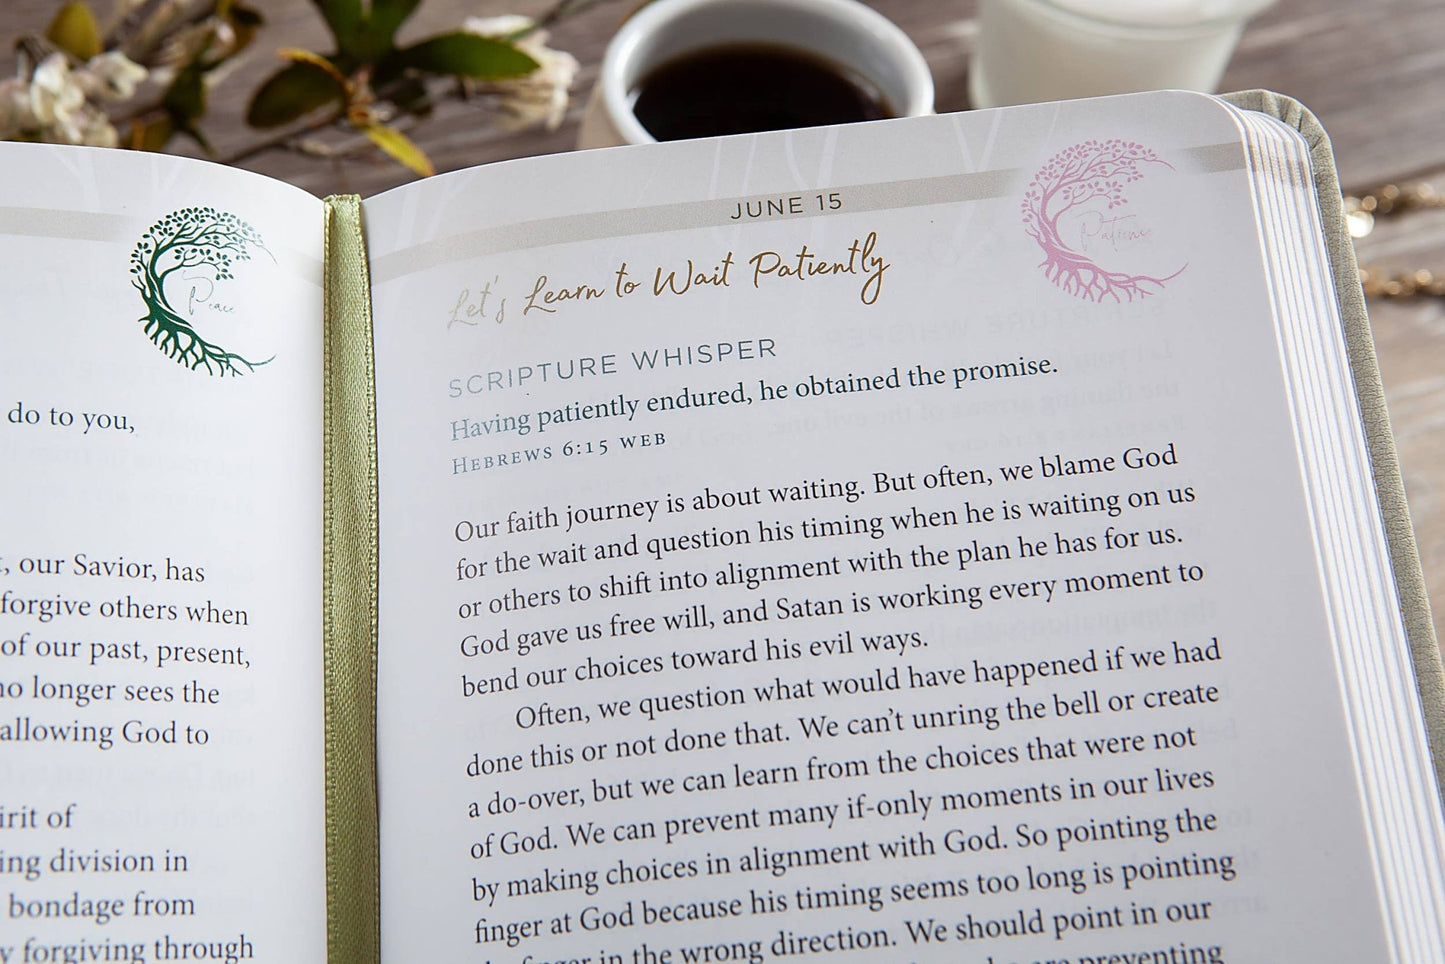 Peace
do to you,
, our Savior, has
forgive others when
of our past, present,
no longer sees the
allowing God to
irit of
ing division in
bondage from
y forgiving through
JUNE 15
Patience
Let's Learn to Wait Patiently
SCRIPTURE WHISPER
Having patiently endured, he obtained the promise.
HEBREWS 6:15 WEB
Our faith journey is about waiting. But often, we blame God
for the wait and question his timing when he is waiting on us
or others to shift into alignment with the plan he has for us.
God gave us free will, and Satan is working every moment to
bend our choices toward his evil ways.
Often, we question what would have happened if we had
done this or not done that. We can't unring the bell or create
a do-over, but we can learn from the choices that were not
of God. We can prevent many if-only moments in our lives
by making choices in alignment with God. So pointing the
finger at God because his timing seems too long is pointing
the finger in the wrong direction. We should point in our
are preventing